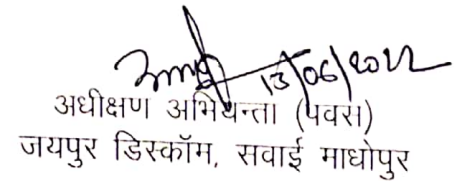 13/06/2022
अधीक्षण अभियन्ता (पवस)
जयपुर डिस्कॉम, सवाई माधोपुर